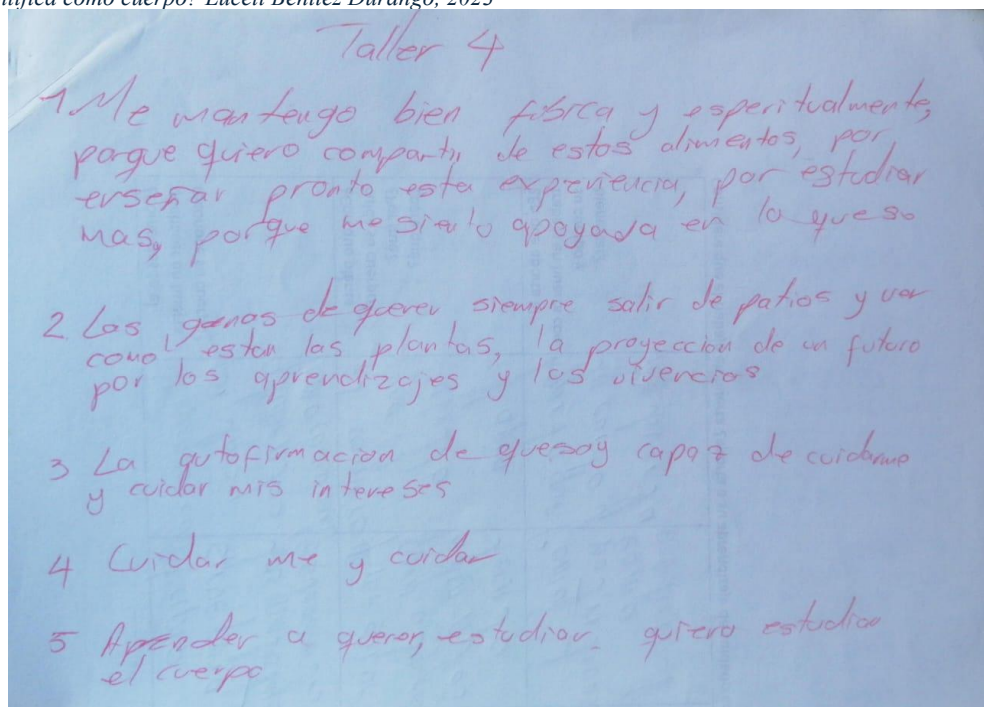 como cuerpo? Luceli Benitez Durango, 2023
Taller 4
1. Me mantengo bien física y esperitualmente,
porque quiero compartir de estos alimentos, por
enseñar pronto esta experiencia, por estudiar
mas, porque me siento apoyada en lo que so
2. Las ganas de querer siempre salir de patios y ver
como estan las plantas, la proyeccion de un futuro
por los aprendizajes y las vivencias
3 La autofirmacion de que soy capaz de cuidarme
y cuidar mis intereses
4 Cuidar me y cuidar
5 Aprender a querer, estudiar. quiero estudiar
el cuerpo